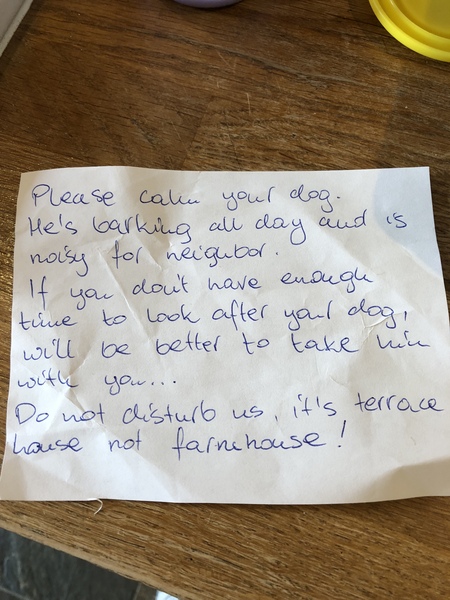 Please calm your dog.
He's barking all day and is
noisy for neighbor.
If you don't have enough
time to look after your dog,
will be better to take him
with you...
Do not disturb us, it's terrace
house not farmhouse!